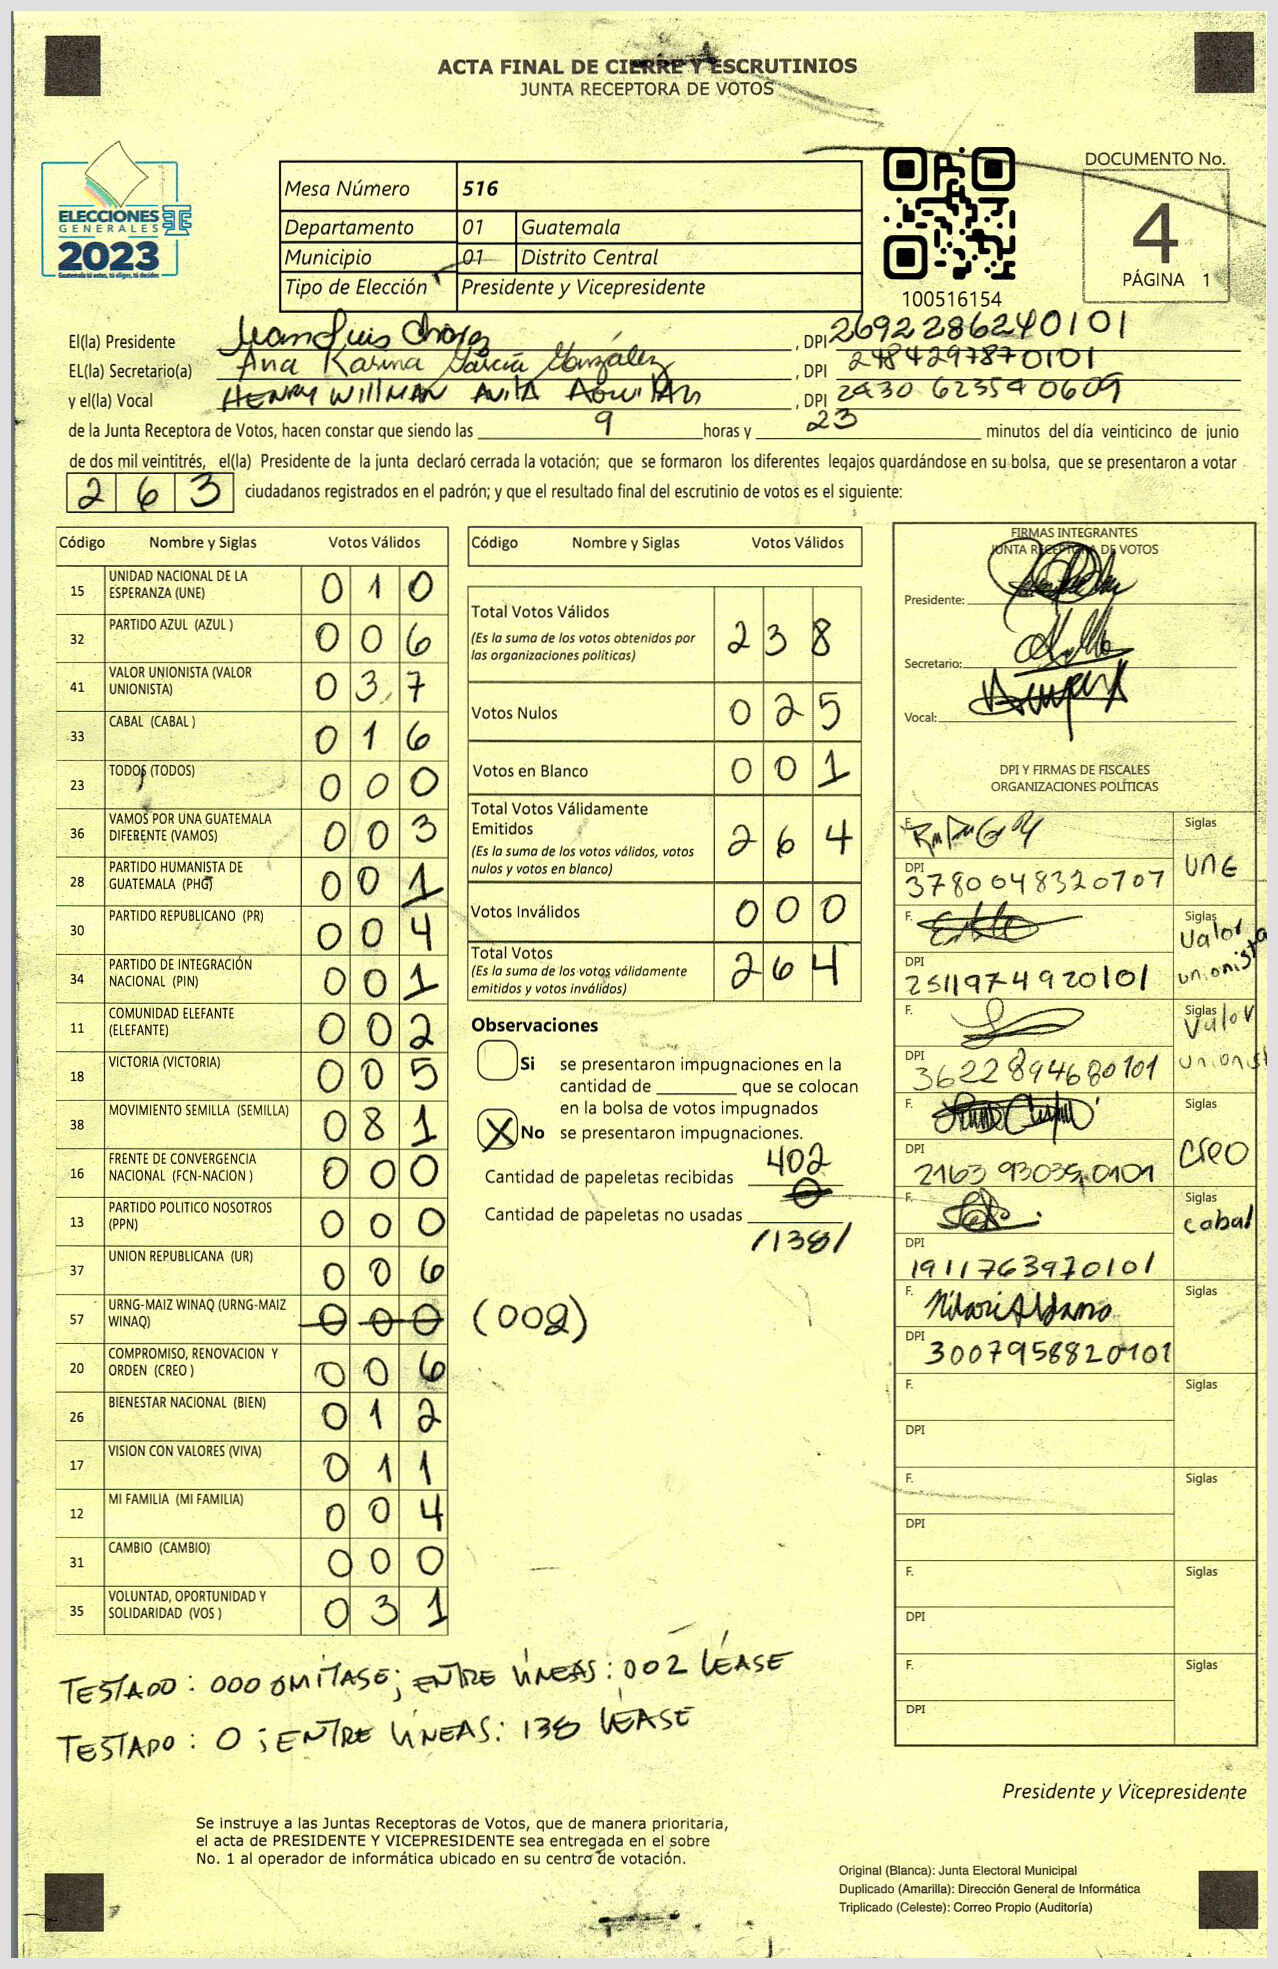 ACTA FINAL DE CIERRE Y ESCRUTINIOS
JUNTA RECEPTORA DE VOTOS
ELECCIONES
GENERALES
2023
Guatemala tú votas, tú eliges, tú decides
Mesa Número 516
Departamento 01 Guatemala
Municipio 01 Distrito Central
Tipo de Elección Presidente y Vicepresidente
100516154
DOCUMENTO No.
4
PÁGINA 1
El(la) Presidente Luis , DPI 2692286240101
EL(la) Secretario(a) Ana Karina García González , DPI 2484297870101
y el(la) Vocal HENRY WILLMAN AVILA AGUILAR , DPI 2430 62354 0609
de la Junta Receptora de Votos, hacen constar que siendo las 9 horas y 23 minutos del día veinticinco de junio
de dos mil veintitrés, el(la) Presidente de la junta declaró cerrada la votación; que se formaron los diferentes legajos guardándose en su bolsa, que se presentaron a votar
263 ciudadanos registrados en el padrón; y que el resultado final del escrutinio de votos es el siguiente:
Código Nombre y Siglas Votos Válidos
15 UNIDAD NACIONAL DE LA ESPERANZA (UNE) 010
32 PARTIDO AZUL (AZUL ) 006
41 VALOR UNIONISTA (VALOR UNIONISTA) 037
33 CABAL (CABAL ) 016
23 TODOS (TODOS) 000
36 VAMOS POR UNA GUATEMALA DIFERENTE (VAMOS) 003
28 PARTIDO HUMANISTA DE GUATEMALA (PHG) 001
30 PARTIDO REPUBLICANO (PR) 004
34 PARTIDO DE INTEGRACIÓN NACIONAL (PIN) 001
11 COMUNIDAD ELEFANTE (ELEFANTE) 002
18 VICTORIA (VICTORIA) 005
38 MOVIMIENTO SEMILLA (SEMILLA) 081
16 FRENTE DE CONVERGENCIA NACIONAL (FCN-NACION ) 000
13 PARTIDO POLITICO NOSOTROS (PPN) 000
37 UNION REPUBLICANA (UR) 006
57 URNG-MAIZ WINAQ (URNG-MAIZ WINAQ) 000 (002)
20 COMPROMISO, RENOVACION Y ORDEN (CREO ) 006
26 BIENESTAR NACIONAL (BIEN) 012
17 VISION CON VALORES (VIVA) 011
12 MI FAMILIA (MI FAMILIA) 004
31 CAMBIO (CAMBIO) 000
35 VOLUNTAD, OPORTUNIDAD Y SOLIDARIDAD (VOS ) 031
Código Nombre y Siglas Votos Válidos
Total Votos Válidos 238
(Es la suma de los votos obtenidos por
las organizaciones políticas)
Votos Nulos 025
Votos en Blanco 001
Total Votos Válidamente
Emitidos 264
(Es la suma de los votos válidos, votos
nulos y votos en blanco)
Votos Inválidos 000
Total Votos 264
(Es la suma de los votos válidamente
emitidos y votos inválidos)
Observaciones
Si se presentaron impugnaciones en la
cantidad de ________ que se colocan
en la bolsa de votos impugnados
X No se presentaron impugnaciones.
Cantidad de papeletas recibidas 402
Cantidad de papeletas no usadas 0
/138/
FIRMAS INTEGRANTES
JUNTA RECEPTORA DE VOTOS
Presidente:
Secretario:
Vocal:
DPI Y FIRMAS DE FISCALES
ORGANIZACIONES POLÍTICAS
F. Siglas UNE
DPI 3780048320707
F. Siglas Valor unionista
DPI 2511974920101
F. Siglas Valor unionist
DPI 3622894680101
F. Siglas Creo
DPI 2163 93035 0101
F. Siglas cabal
DPI 1911763970101
F.
DPI 3007958820101
F. Siglas
DPI
F. Siglas
DPI
F. Siglas
DPI
F. Siglas
DPI
TESTADO: 000 OMITASE; ENTRE LÍNEAS: 002 LÉASE
TESTADO: 0 ; ENTRE LÍNEAS: 138 LÉASE
Presidente y Vicepresidente
Se instruye a las Juntas Receptoras de Votos, que de manera prioritaria,
el acta de PRESIDENTE Y VICEPRESIDENTE sea entregada en el sobre
No. 1 al operador de informática ubicado en su centro de votación.
Original (Blanca): Junta Electoral Municipal
Duplicado (Amarilla): Dirección General de Informática
Triplicado (Celeste): Correo Propio (Auditoría)